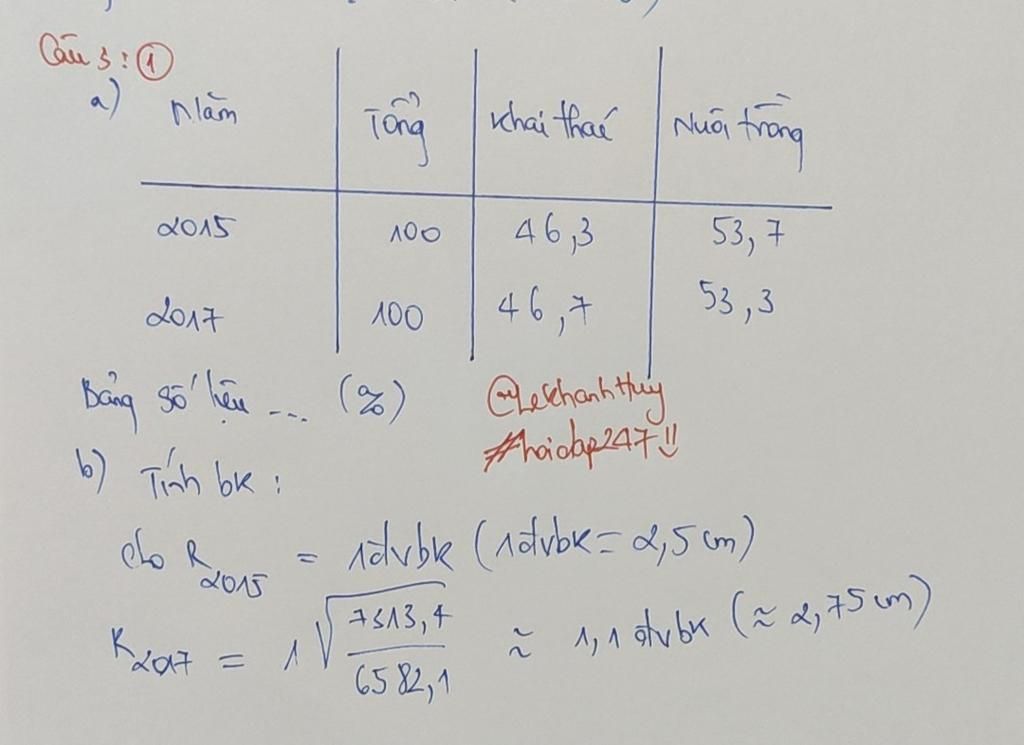 Câu 3: ①
a) Năm Tổng Khai thác Nuôi trồng
2015 100 46,3 53,7
2017 100 46,7 53,3
Bảng số liệu ... (%)
@LeKhanhHuy
#hoidap247!!
b) Tính bk :
cho R2015 = 1đvbk (1đvbk = 2,5 cm)
R2017 = 1√7313,4/6582,1 ≈ 1,1 đvbk (≈ 2,75 cm)